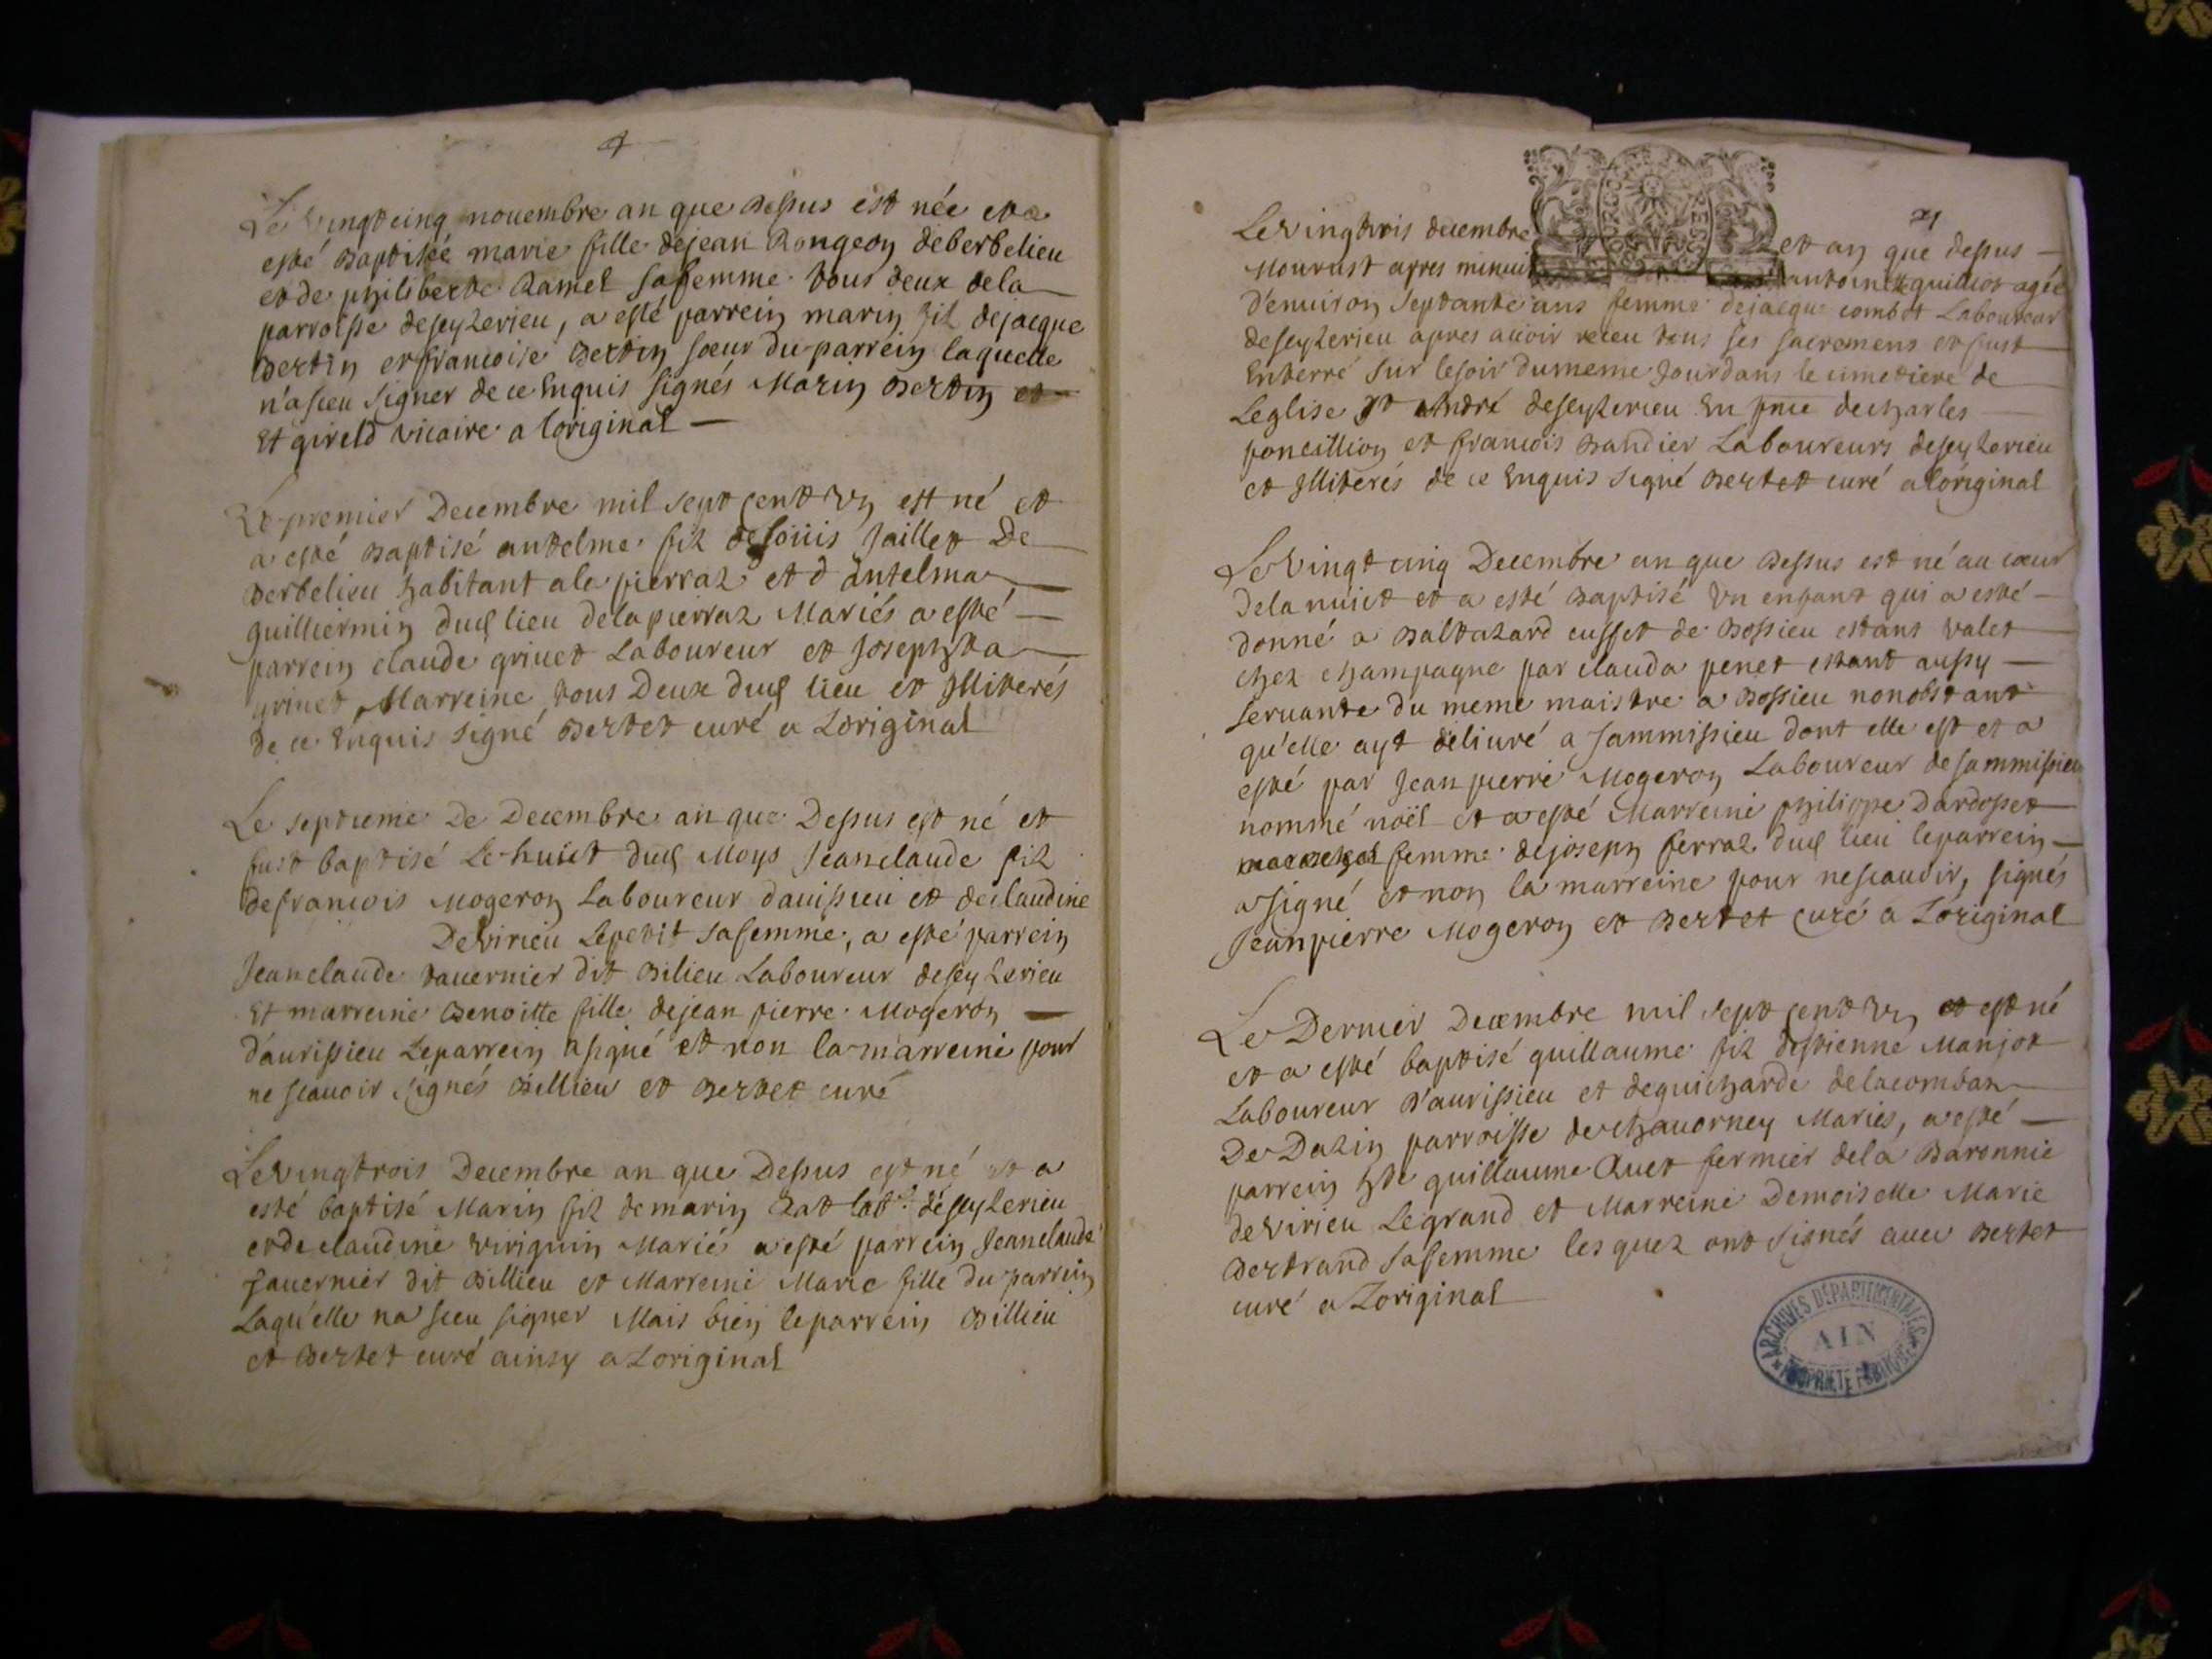 Le vingt cinq novembre an que dessus est née et a
esté baptisée marie fille de jean Rongeon de berbelieu
et de philiberte Ramel sa femme tous deux de la
parroisse de seyzerieu, a esté parrein marin fil de jacque
Bertin et francoise Bertin sœur du parrein laquelle
n'a sceu signer de ce enquis signés Marin Bertin et
Et gireld vicaire a l'original
Le premier Decembre mil sept cent un est né et
a esté baptisé antelme fil de loüis Jaillet De
Berbelieu habitant a la pierraz et d'antelma
guilliermin dud lieu de la pierraz Mariés a esté
parrein claude grinet Laboureur et Josephta
grinet Marreine tous Deux dud lieu et Illiterés
de ce enquis signé Bertet curé a L'original
Le septieme De Decembre an que Dessus est né et
fust baptisé Le huict dud Moys Jeanclaude fil
de francois Mogeron Laboureur d'auissieu et de claudine
De virieu Le petit sa femme, a esté parrein
Jeanclaude tauernier dit Bilieu Laboureur de seyzerieu
Et marreine Benoitte fille de jean pierre Mogeron
d'aurissieu Le parrein a signé et non la marreine pour
ne scauoir signés Billieu et Bertet curé
Le vingtrois Decembre an que Dessus est né et a
esté baptisé Marin fil de marin Rat lab.r de seyzerieu
et de claudine viriguin Marié a esté parrein Jeanclaude
Tauernier dit Billieu et Marreine Marie fille du parrein
Laquelle na sceu signer Mais bien le parrein Billieu
et Bertet curé ainsy a L'original
Le vingtrois decembre et an que dessus
Mourust apres minuit antoinette guilliot agée
D'enuiron septante ans femme de jacque combet Laboureur
de seyzerieu apres auoir receu tous ses sacremens et fust
Enterré sur le soir du meme Jour dans le cimetiere de
Leglise St André de seyzerieu En pnce de charles
poncillion et francois Bandier Laboureurs de seyzerieu
et Illiterés de ce enquis signé Bertet curé a l'original
Le vingt cinq Decembre an que Dessus est né au cœur
De la nuict et a esté Baptisé un enfant qui a esté
donné a Baltazard cusset de Bossieu estant valet
chez champagne par clauda penet estant aussy
seruante du meme maistre a Bossieu nonobstant
qu'elle ayt deliuré a sammissieu dont elle est et a
esté par Jean pierre Mogeron Laboureur de sammissieu
nommé noël et a esté Marreine philippe Dardosset
femme de joseph ferraz dud lieu le parrein
a signé et non la marreine pour ne scauoir, signés
Jeanpierre Mogeron et Bertet curé a L'original
Le Dernier Decembre mil sept cent un et est né
et a esté baptisé guillaume fil d'estienne Manjot
Laboureur D'aurissieu et de guicharde de lacombaz
De Dazin parroisse de chauorney Mariés, a esté
parrein Hte guillaume Ruet fermier de la Baronnie
de virieu Le grand et Marreine Demoiselle Marie
Bertrand sa femme lesquez ont signés auec Bertet
curé a L'original
ARCHIVES DEPARTEMENTALES
AIN
PROPRIETE PUBLIQUE